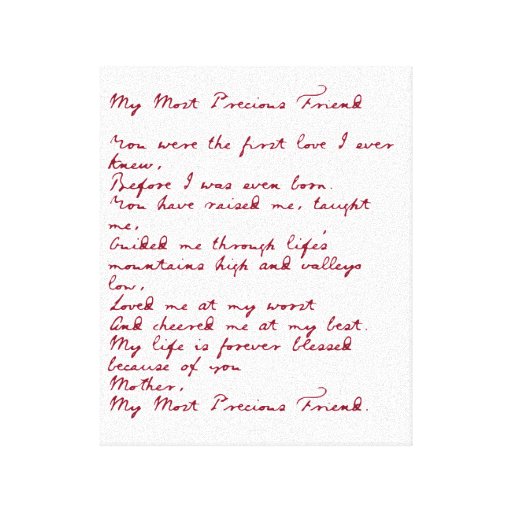 My Most Precious Friend
You were the first love I ever
knew,
Before I was even born.
You have raised me, taught
me,
Guided me through life's
mountains high and valleys
low,
Loved me at my worst
And cheered me at my best.
My life is forever blessed
because of you
Mother,
My Most Precious Friend.